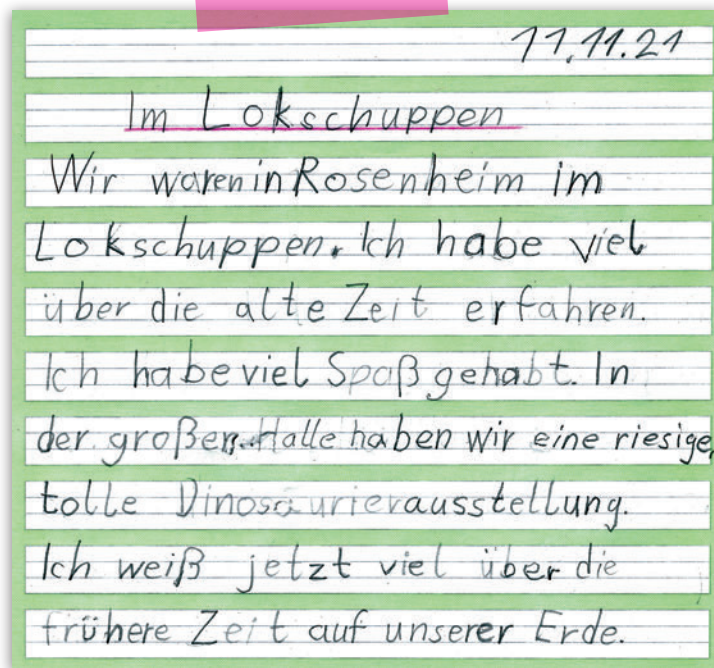 11.11.21
Im Lokschuppen
Wir waren in Rosenheim im
Lokschuppen. Ich habe viel
über die alte Zeit erfahren.
Ich habe viel Spaß gehabt. In
der großen Halle haben wir eine riesige,
tolle Dinosaurierausstellung.
Ich weiß jetzt viel über die
frühere Zeit auf unserer Erde.